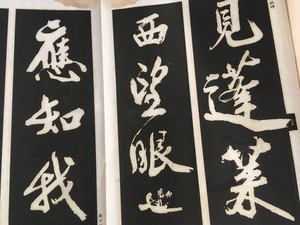 見蓬萊
西望眼
應知我